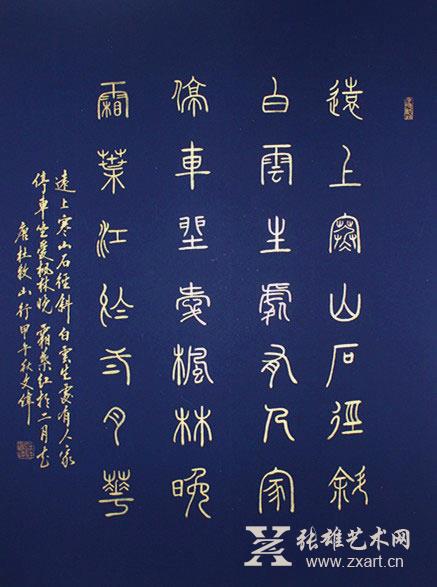 遠上寒山石徑斜
白雲生處有人家
停車坐愛楓林晚
霜葉江於弍月華
遠上寒山石径斜 白雲生處有人家
停車坐愛楓林晚 霜葉红於二月花
唐杜牧山行 甲午秋文偉
张雄艺术网
www.zxart.cn